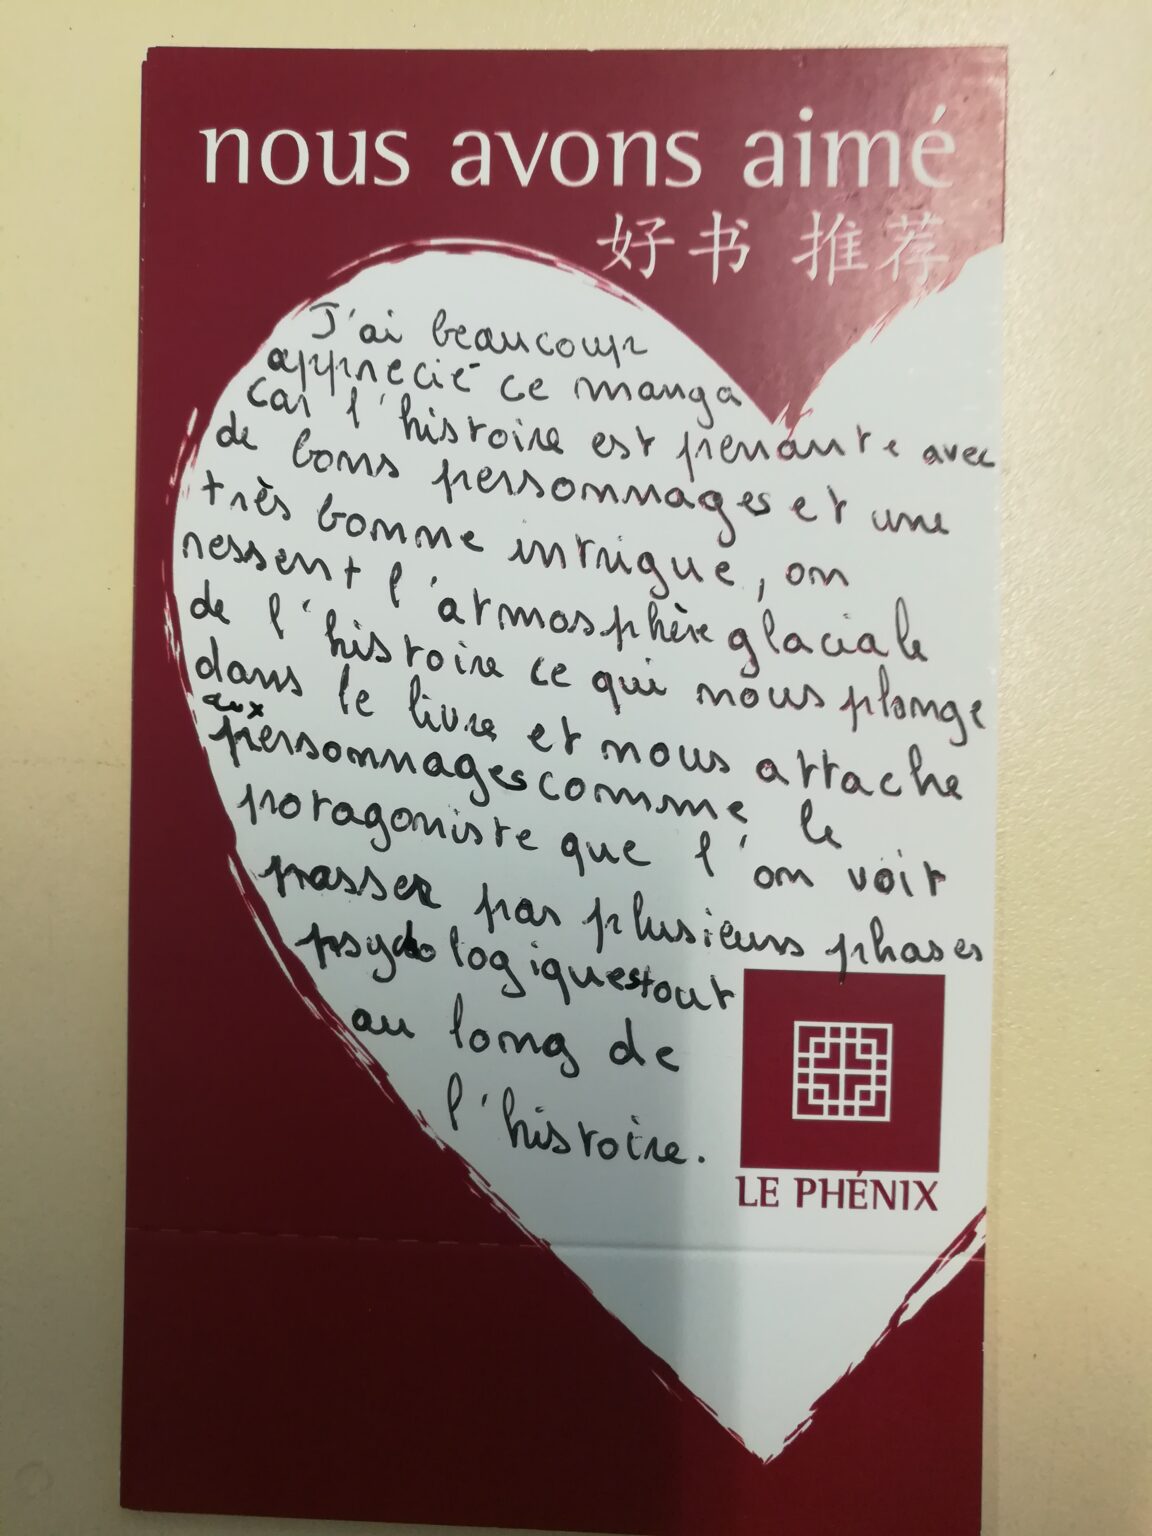 nous avons aimé
好书 推荐
J'ai beaucoup
apprecié ce manga
car l'histoire est prenante avec
de bons personnages et une
très bonne intrigue, on
ressent l'atmosphère glaciale
de l'histoire ce qui nous plonge
dans le livre et nous attache
aux
personnages comme le
protagoniste que l'on voit
passer par plusieurs phases
psychologiques tout
au long de
l'histoire.
LE PHÉNIX